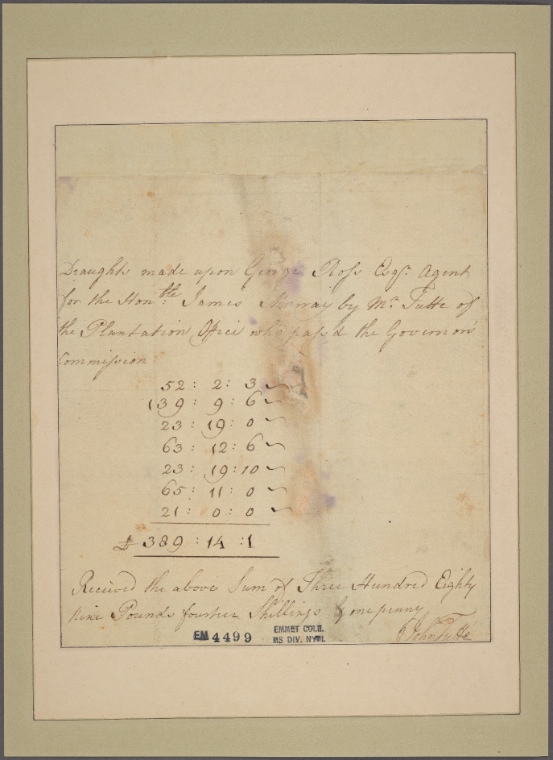 Draughts made upon George Ross Esqr. Agent
for the Honble. James Murray by Mr. Tutte of
the Plantation Office who pass'd the Governors
Commission
52 : 2 : 3
139 9 : 6
23 : 19 : 0
63 : 12 : 6
23 : 19 : 10
65 : 11 : 0
21 : 0 : 0
£ 389 : 14 : 1
Received the above Sum of Three Hundred Eighty
Nine Pounds fourteen Shillings & one penny
John Tutte
EM 4499
EMMET COLL.
MS DIV. NYPL